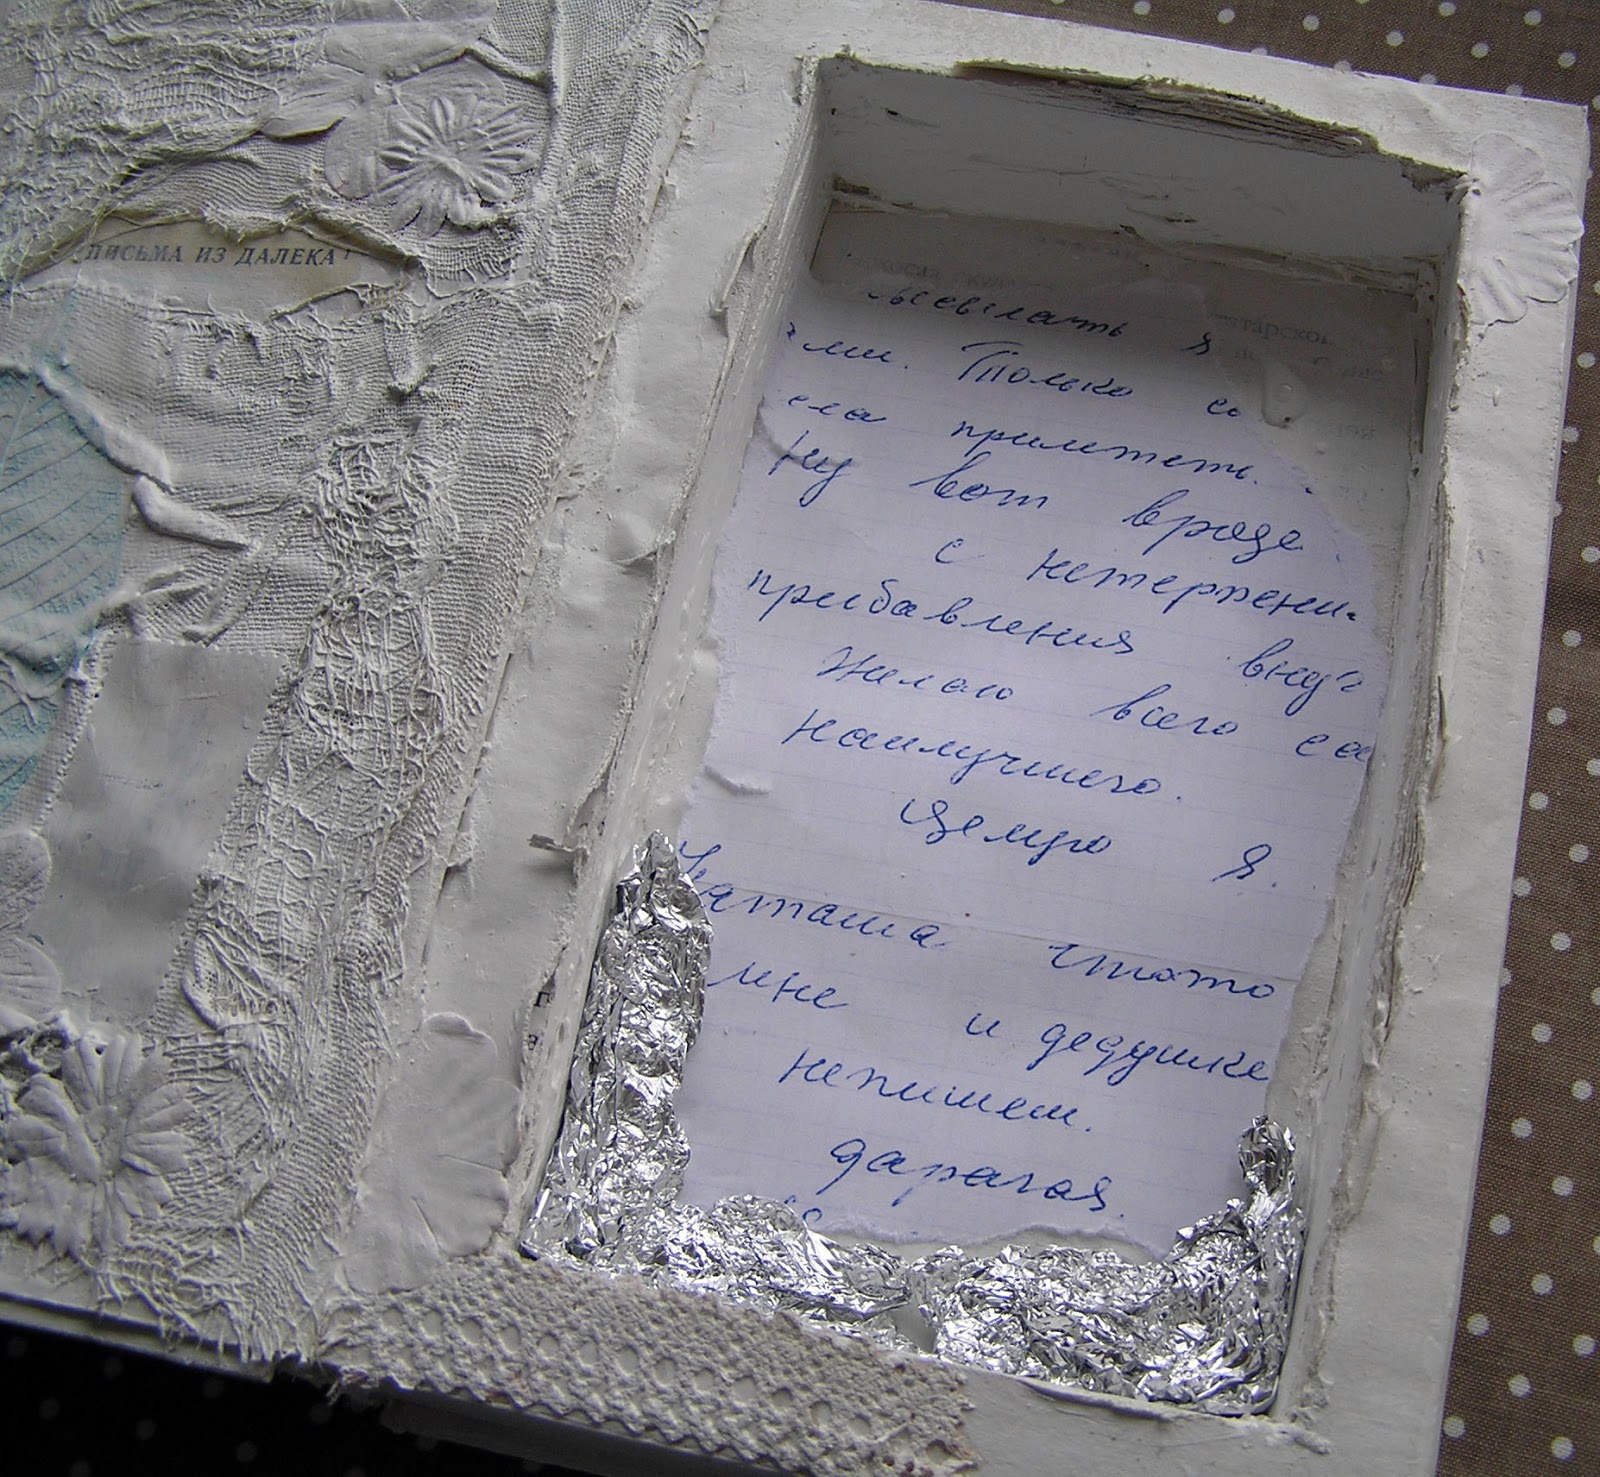 ПИСЬМА ИЗ ДАЛЕКА
я
ми. Только со
ела прилететь.
Ну вот вроде
с нетерпени
прибавления вну
Желаю всего са
наилучшего.
Целую я.
Наташа чтото
мне и дедушке
непишем.
дарагая.